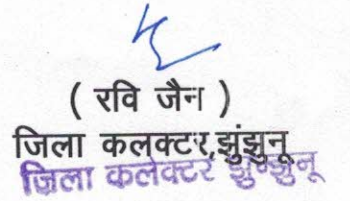 ( रवि जैन )
जिला कलक्टर,झुंझुनू
जिला कलेक्टर झुन्झुनू